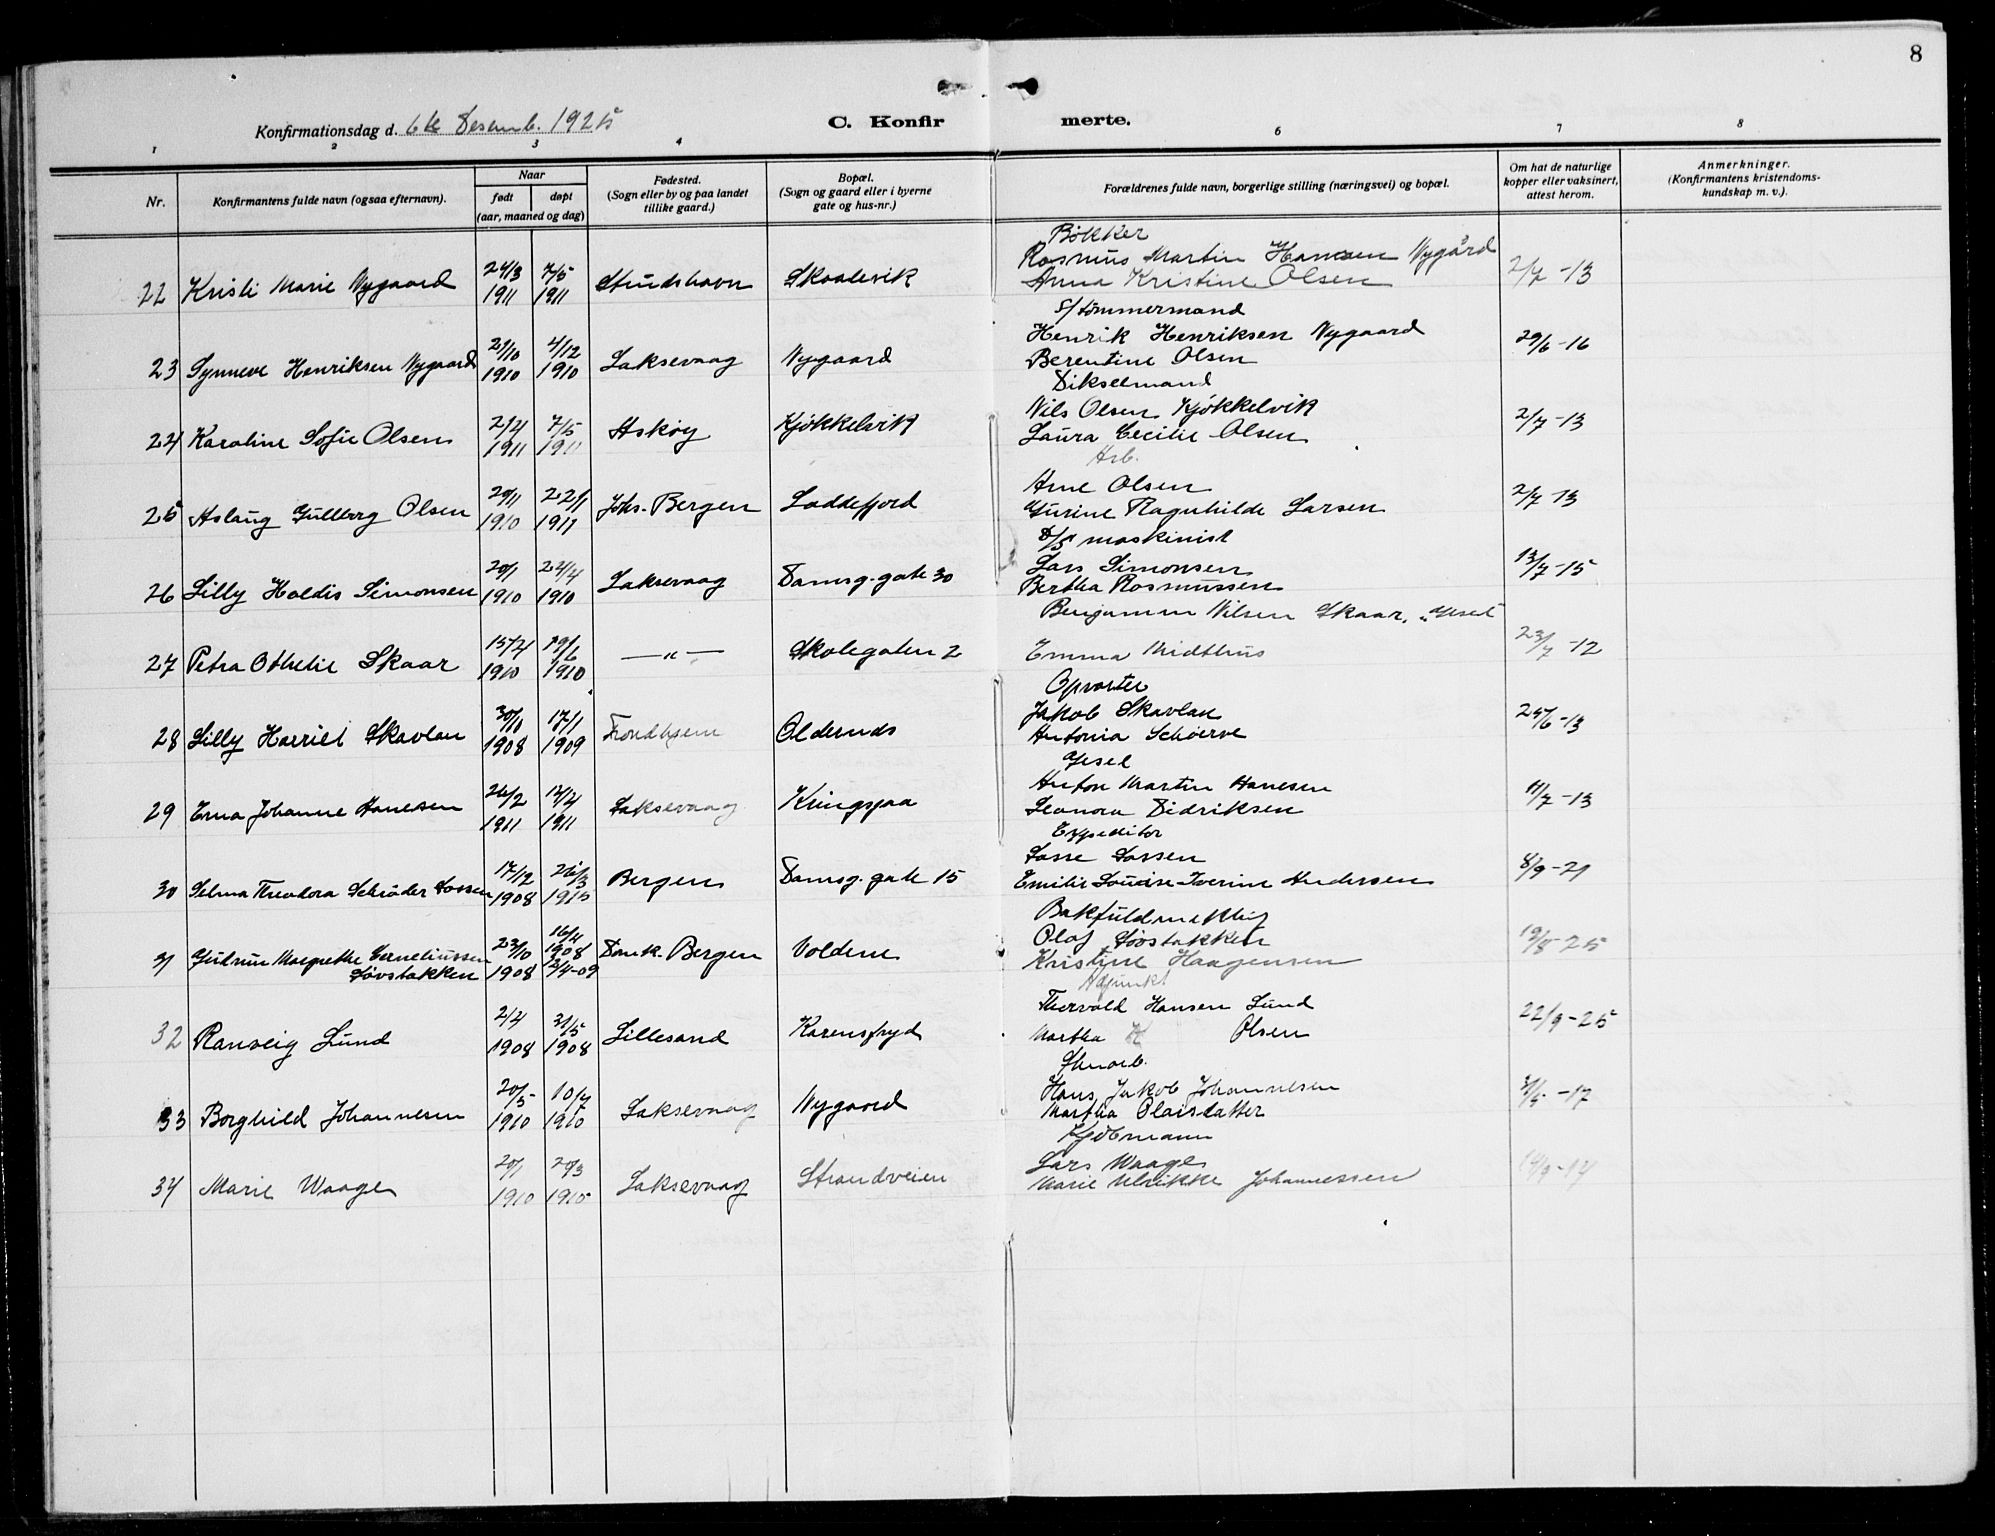 8
Konfirmationsdag d. 6te Desemb. 1925
C. Konfirmerte.
1 2 3 4 6 7 8
Nr.
Konfirmantens fulde navn (ogsaa efternavn).
Naar
født døpt
(aar, maaned og dag)
Fødested.
(Sogn eller by og paa landet
tillike gaard.)
Bopæl.
(Sogn og gaard eller i byerne
gate og hus-nr.)
Forældrenes fulde navn, borgerlige stilling (næringsvei) og bopæl.
Om hat de naturlige
kopper eller vaksinert,
attest herom.
Anmerkninger.
(Konfirmantens kristendoms-
kundskap m. v.).
Bøkker
Rasmus Martin Hansen Nygård
22 Kristi Marie Nygaard 24/3 1911 7/5 1911 Strudshavn Skaalevik Anna Kristine Olsen 2/7 -13
S/tømmermand
Henrik Henriksen Nygaard
23 Synneve Henriksen Nygaard 21/10 1910 4/12 1910 Laksevaag Nygaard Berentine Olsen 29/6 -16
Dikselmand
Nils Olsen Kjøkkelvik
24 Karoline Sofie Olsen 2/4 1911 7/5 1911 Askøy Kjøkkelvik Laura Cecilie Olsen 2/7 -13
Arb.
Arne Olsen
25 Aslaug Gullborg Olsen 29/11 1910 22/1 1911 Johs. Bergen Loddefjord Gurine Ragnhilde Larsen 2/7 -13
D/S maskinist
Lars Simonsen
26 Lilly Haldis Simonsen 20/1 1910 24/4 1910 Laksevaag Damsg. gate 30 Bertha Rasmussen 13/7 -15
Benjamin Nilsen Skaar,
27 Petra Othelie Skaar 15/4 1910 19/6 1910 — " — Skolegaten 2 Emma Midthus 23/7 -12
Opvarter
Jakob Skavlan
28 Lilly Harriet Skavlan 30/10 1908 17/1 1909 Trondhjem Oldernes Antonia 25/6 -13
Gjesel
Anton Martin Hansen
29 Erna Johanne Hansen 26/2 1911 17/4 1911 Laksevaag Kringsjaa Leonora Didriksen 11/7 -13
Expeditør
Lasse Lassen
30 Selma Theodora Schrøder Lassen 17/12 1908 Bergen Damsg. gate 15 Emilie Louise Iverine Andersen 8/9 -21
Olaf Løvstakken
31 Gudrun Margrethe Corneliussen Løvstakken 23/10 1908 16/4 1908 2/4-09 Domk. Bergen Voldene Kristine Haagensen
Adjunkt
Thorvald Hansen Lund
32 Ranveig Lund 2/4 1908 31/5 1908 Lillesand Karensfryd Martha K Olsen 22/9 -25
Hans Jakob Johannesen
33 Borghild Johannesen 20/5 1910 10/7 1910 Laksevaag Nygaard Martha Olaisdatter -17
Kjøbmann
Lars Waage
34 Marie Waage 20/1 1910 20/3 1910 Laksevaag Strandveien Marie Ulrikke Johannessen